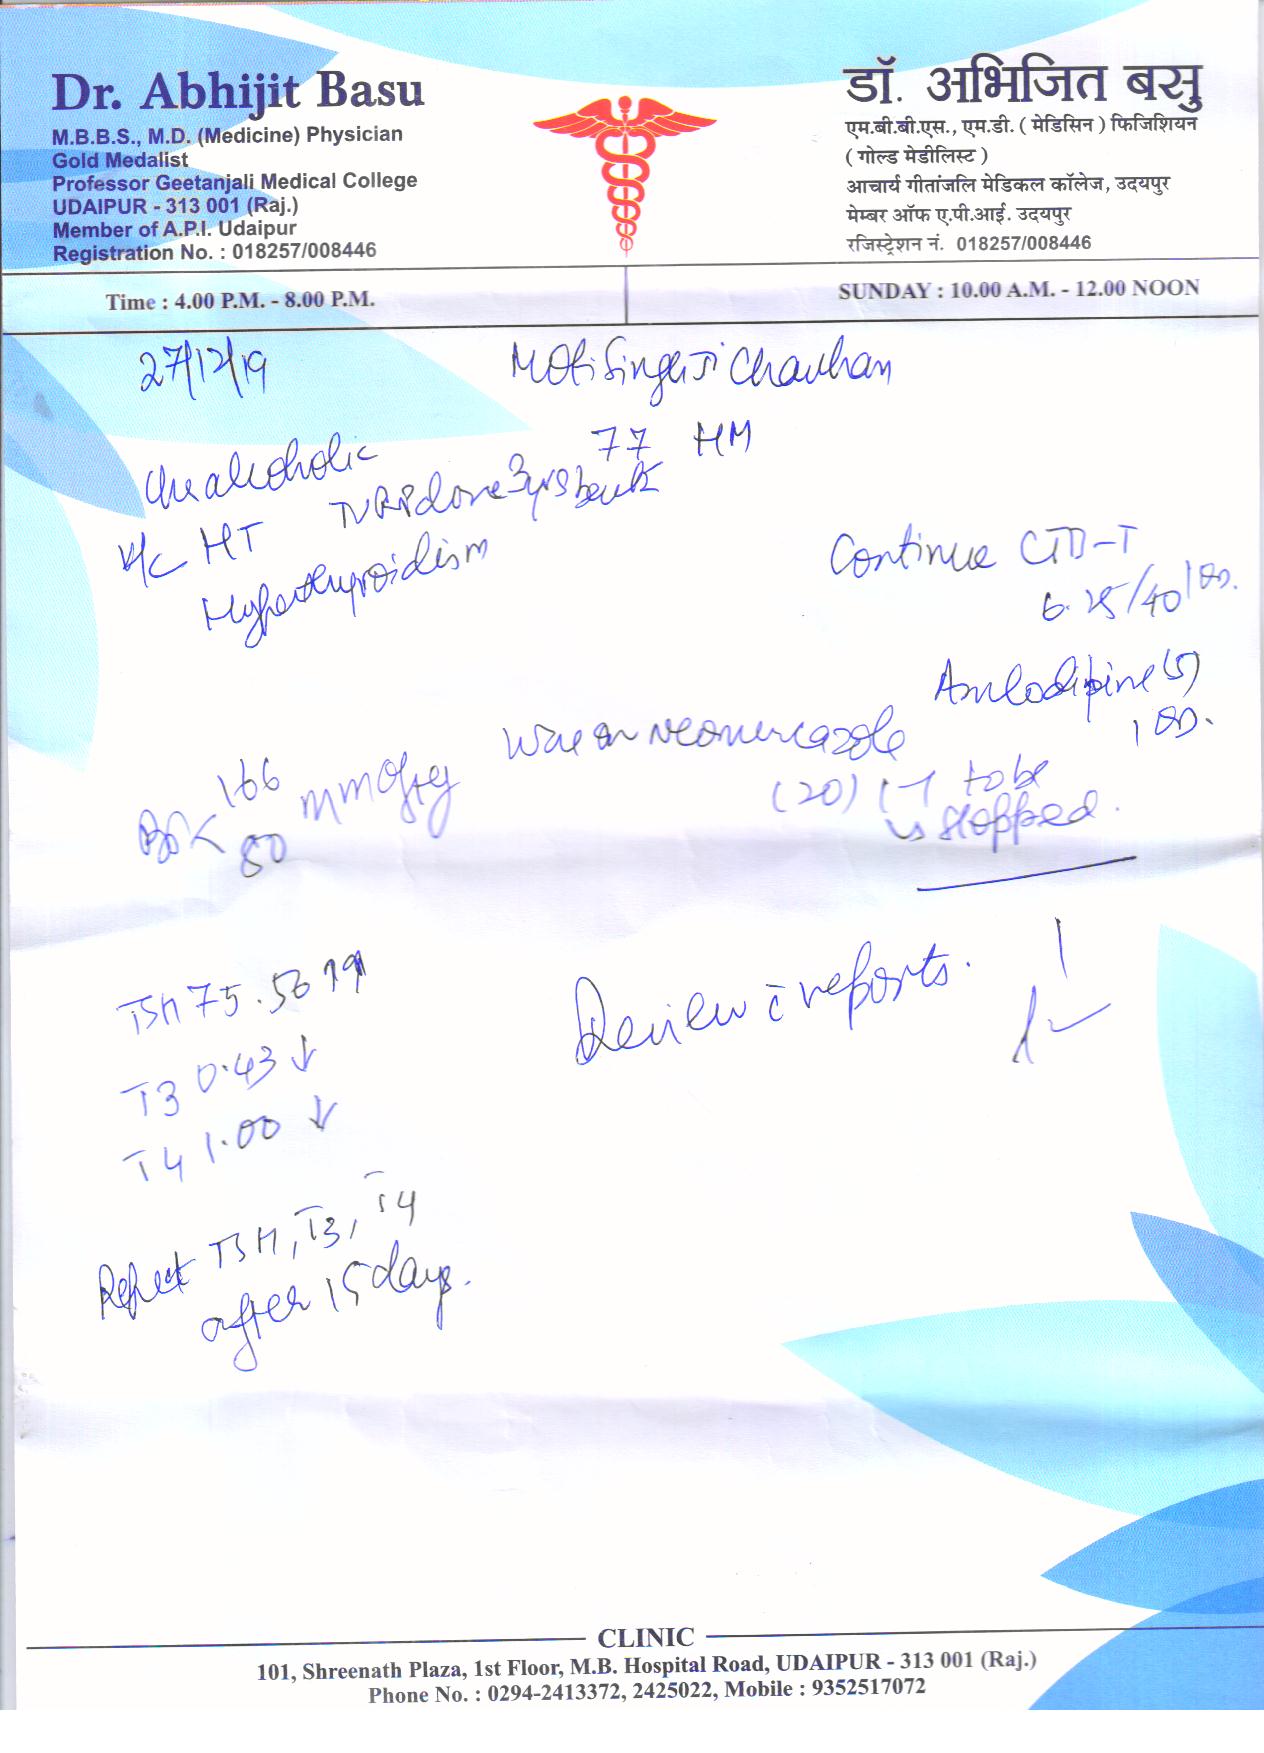 Dr. Abhijit Basu
M.B.B.S., M.D. (Medicine) Physician
Gold Medalist
Professor Geetanjali Medical College
UDAIPUR - 313 001 (Raj.)
Member of A.P.I. Udaipur
Registration No. : 018257/008446
डॉ. अभिजित बसु
एम.बी.बी.एस., एम.डी. ( मेडिसिन ) फिजिशियन
( गोल्ड मेडीलिस्ट )
आचार्य गीतांजलि मेडिकल कॉलेज, उदयपुर
मेम्बर ऑफ ए.पी.आई. उदयपुर
रजिस्ट्रेशन नं. 018257/008446
Time : 4.00 P.M. - 8.00 P.M.
SUNDAY : 10.00 A.M. - 12.00 NOON
27/12/19
Moti Singh Ji Chauhan
77 HM
Chr alcoholic
TURP done 3 yrs back
K/C HT
Hyperthyroidism
Continue CTD-T
6.25/40 1 OD.
Amlodipine (5)
1 OD.
Was on neomercazole
(20)
to be
stopped.
166
80
mmofHg
TSH 75.5619
T3 0.43 ↓
T4 1.00 ↓
Review c̄ reports.
Repeat TSH, T3, T4
after 15 days.
CLINIC
101, Shreenath Plaza, 1st Floor, M.B. Hospital Road, UDAIPUR - 313 001 (Raj.)
Phone No. : 0294-2413372, 2425022, Mobile : 9352517072